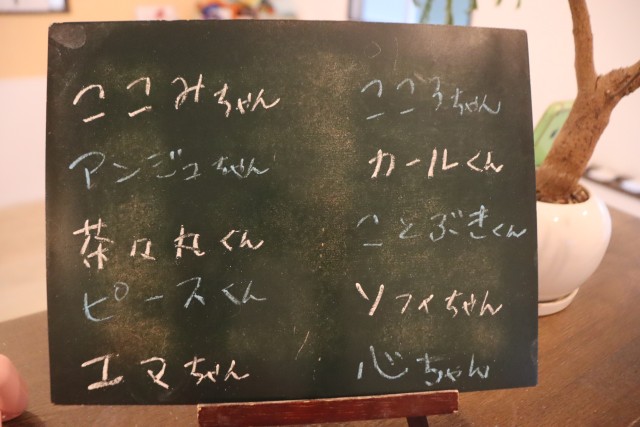 ここみちゃん
アンジュちゃん
茶々丸くん
ピースくん
エマちゃん
こごろちゃん
カールくん
ことぶきくん
ソフィちゃん
心ちゃん